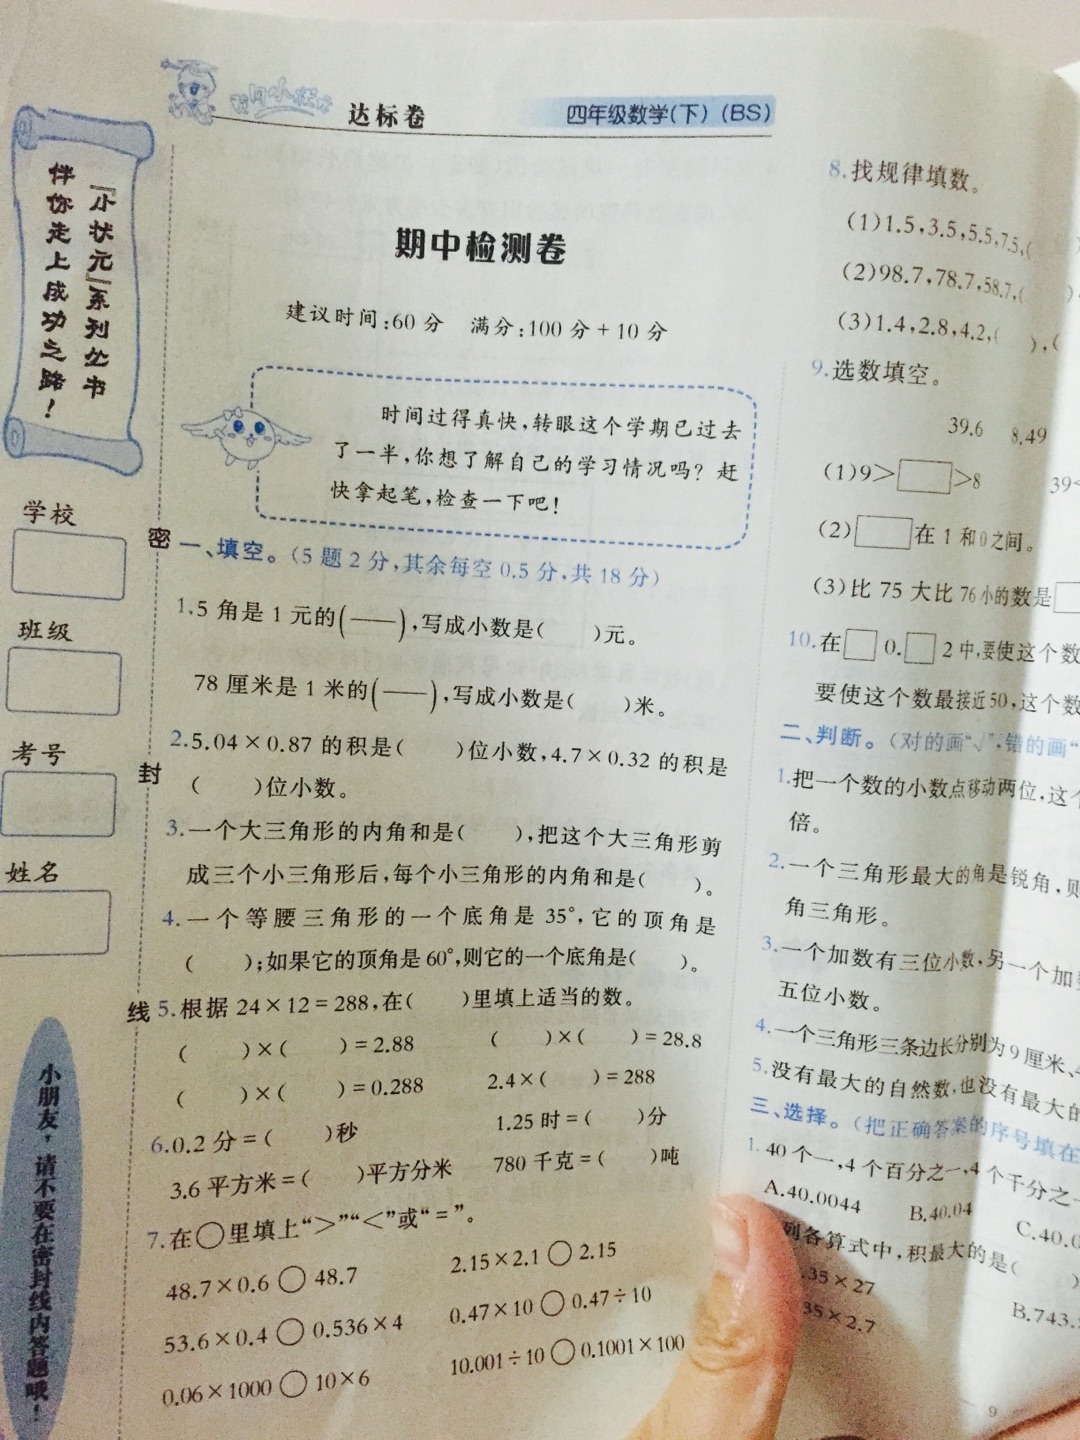 黄冈小状元
达标卷
四年级数学(下)(BS)
『小状元』系列丛书
伴你走上成功之路！
学校
班级
考号
姓名
密
封
线
小朋友，请不要在密封线内答题哦！
期中检测卷
建议时间:60分 满分:100分+10分
时间过得真快,转眼这个学期已过去
了一半,你想了解自己的学习情况吗? 赶
快拿起笔,检查一下吧!
一、填空。(5题2分,其余每空0.5分,共18分)
1.5角是1元的(——),写成小数是( )元。
78厘米是1米的(——),写成小数是( )米。
2.5.04×0.87的积是( )位小数,4.7×0.32的积是
( )位小数。
3.一个大三角形的内角和是( ),把这个大三角形剪
成三个小三角形后,每个小三角形的内角和是( )。
4.一个等腰三角形的一个底角是35°,它的顶角是
( );如果它的顶角是60°,则它的一个底角是( )。
5.根据24×12=288,在( )里填上适当的数。
( )×( )=2.88 ( )×( )=28.8
( )×( )=0.288 2.4×( )=288
6.0.2分=( )秒 1.25时=( )分
3.6平方米=( )平方分米 780千克=( )吨
7.在○里填上“>”“<”或“=”。
48.7×0.6○48.7 2.15×2.1○2.15
53.6×0.4○0.536×4 0.47×10○0.47÷10
0.06×1000○10×6 10.001÷10○0.1001×100
8.找规律填数。
(1)1.5,3.5,5.5,7.5,(
(2)98.7,78.7,58.7,( )
(3)1.4,2.8,4.2,( ),(
9.选数填空。
39.6 8.49
(1)9>□>8 39<
(2)□在1和0之间。
(3)比75大比76小的数是□
10.在□0.□2中,要使这个数
要使这个数最接近50,这个数
二、判断。(对的画“√”,错的画“
1.把一个数的小数点移动两位,这个
倍。
2.一个三角形最大的角是锐角,则
角三角形。
3.一个加数有三位小数,另一个加数
五位小数。
4.一个三角形三条边长分别为9厘米、4
5.没有最大的自然数,也没有最大的
三、选择。(把正确答案的序号填在
1.40个一,4个百分之一,4个千分之一
A.40.0044 B.40.04 C.40.0
列各算式中,积最大的是( )
.35×27 B.743.
35×2.7
9